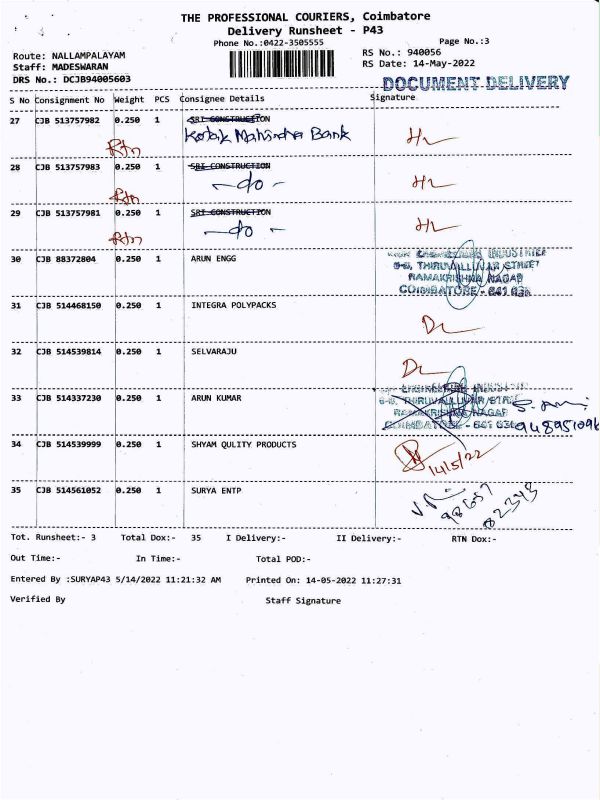 THE PROFESSIONAL COURIERS, Coimbatore
Delivery Runsheet - P43
Phone No.:0422-3505555
Page No.:3
Route: NALLAMPALAYAM
RS No.: 940056
Staff: MADESWARAN
RS Date: 14-May-2022
DRS No.: DCJB94005603
DOCUMENT DELIVERY
S No Consignment No Weight PCS Consignee Details Signature
27 CJB 513757982 0.250 1 SRI CONSTRUCTION
Rtn Kotak Mahindra Bank
28 CJB 513757983 0.250 1 SRI CONSTRUCTION
Rtn - do -
29 CJB 513757981 0.250 1 SRI CONSTRUCTION
Rtn - do -
30 CJB 88372804 0.250 1 ARUN ENGG
INDUSTRIES
THIRUVALLUVAR STREET
RAMAKRISHNA NAGAR
COIMBATORE - 641
31 CJB 514468150 0.250 1 INTEGRA POLYPACKS
32 CJB 514539814 0.250 1 SELVARAJU
33 CJB 514337230 0.250 1 ARUN KUMAR
THIRUVALLUVAR
RAMAKRISHNA NAGAR
COIMBATORE - 641
34 CJB 514539999 0.250 1 SHYAM QULITY PRODUCTS
14/5/22
35 CJB 514561052 0.250 1 SURYA ENTP
Tot. Runsheet:- 3 Total Dox:- 35 I Delivery:- II Delivery:- RTN Dox:-
Out Time:- In Time:- Total POD:-
Entered By :SURYAP43 5/14/2022 11:21:32 AM Printed On: 14-05-2022 11:27:31
Verified By Staff Signature